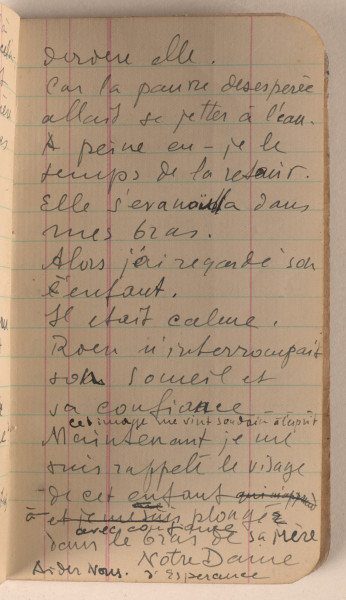 derriere elle.
Car la pauvre desesperée
allait se jetter à l'eau.
A peine eu-je le
temps de la retenir.
Elle s'evanouilla dans
mes bras.
Alors j'ai regardé son
enfant.
Il etait calme.
Rien n'interrompait
son someil et
sa confiance
cet image me vint soudain à l'esprit
Maintenant je me
suis rappelé le visage
de cet enfant
à et je me suis plongé
avec confiance
dans le bras de sa Mère
Notre Dame
Aider Nous. d'Esperance